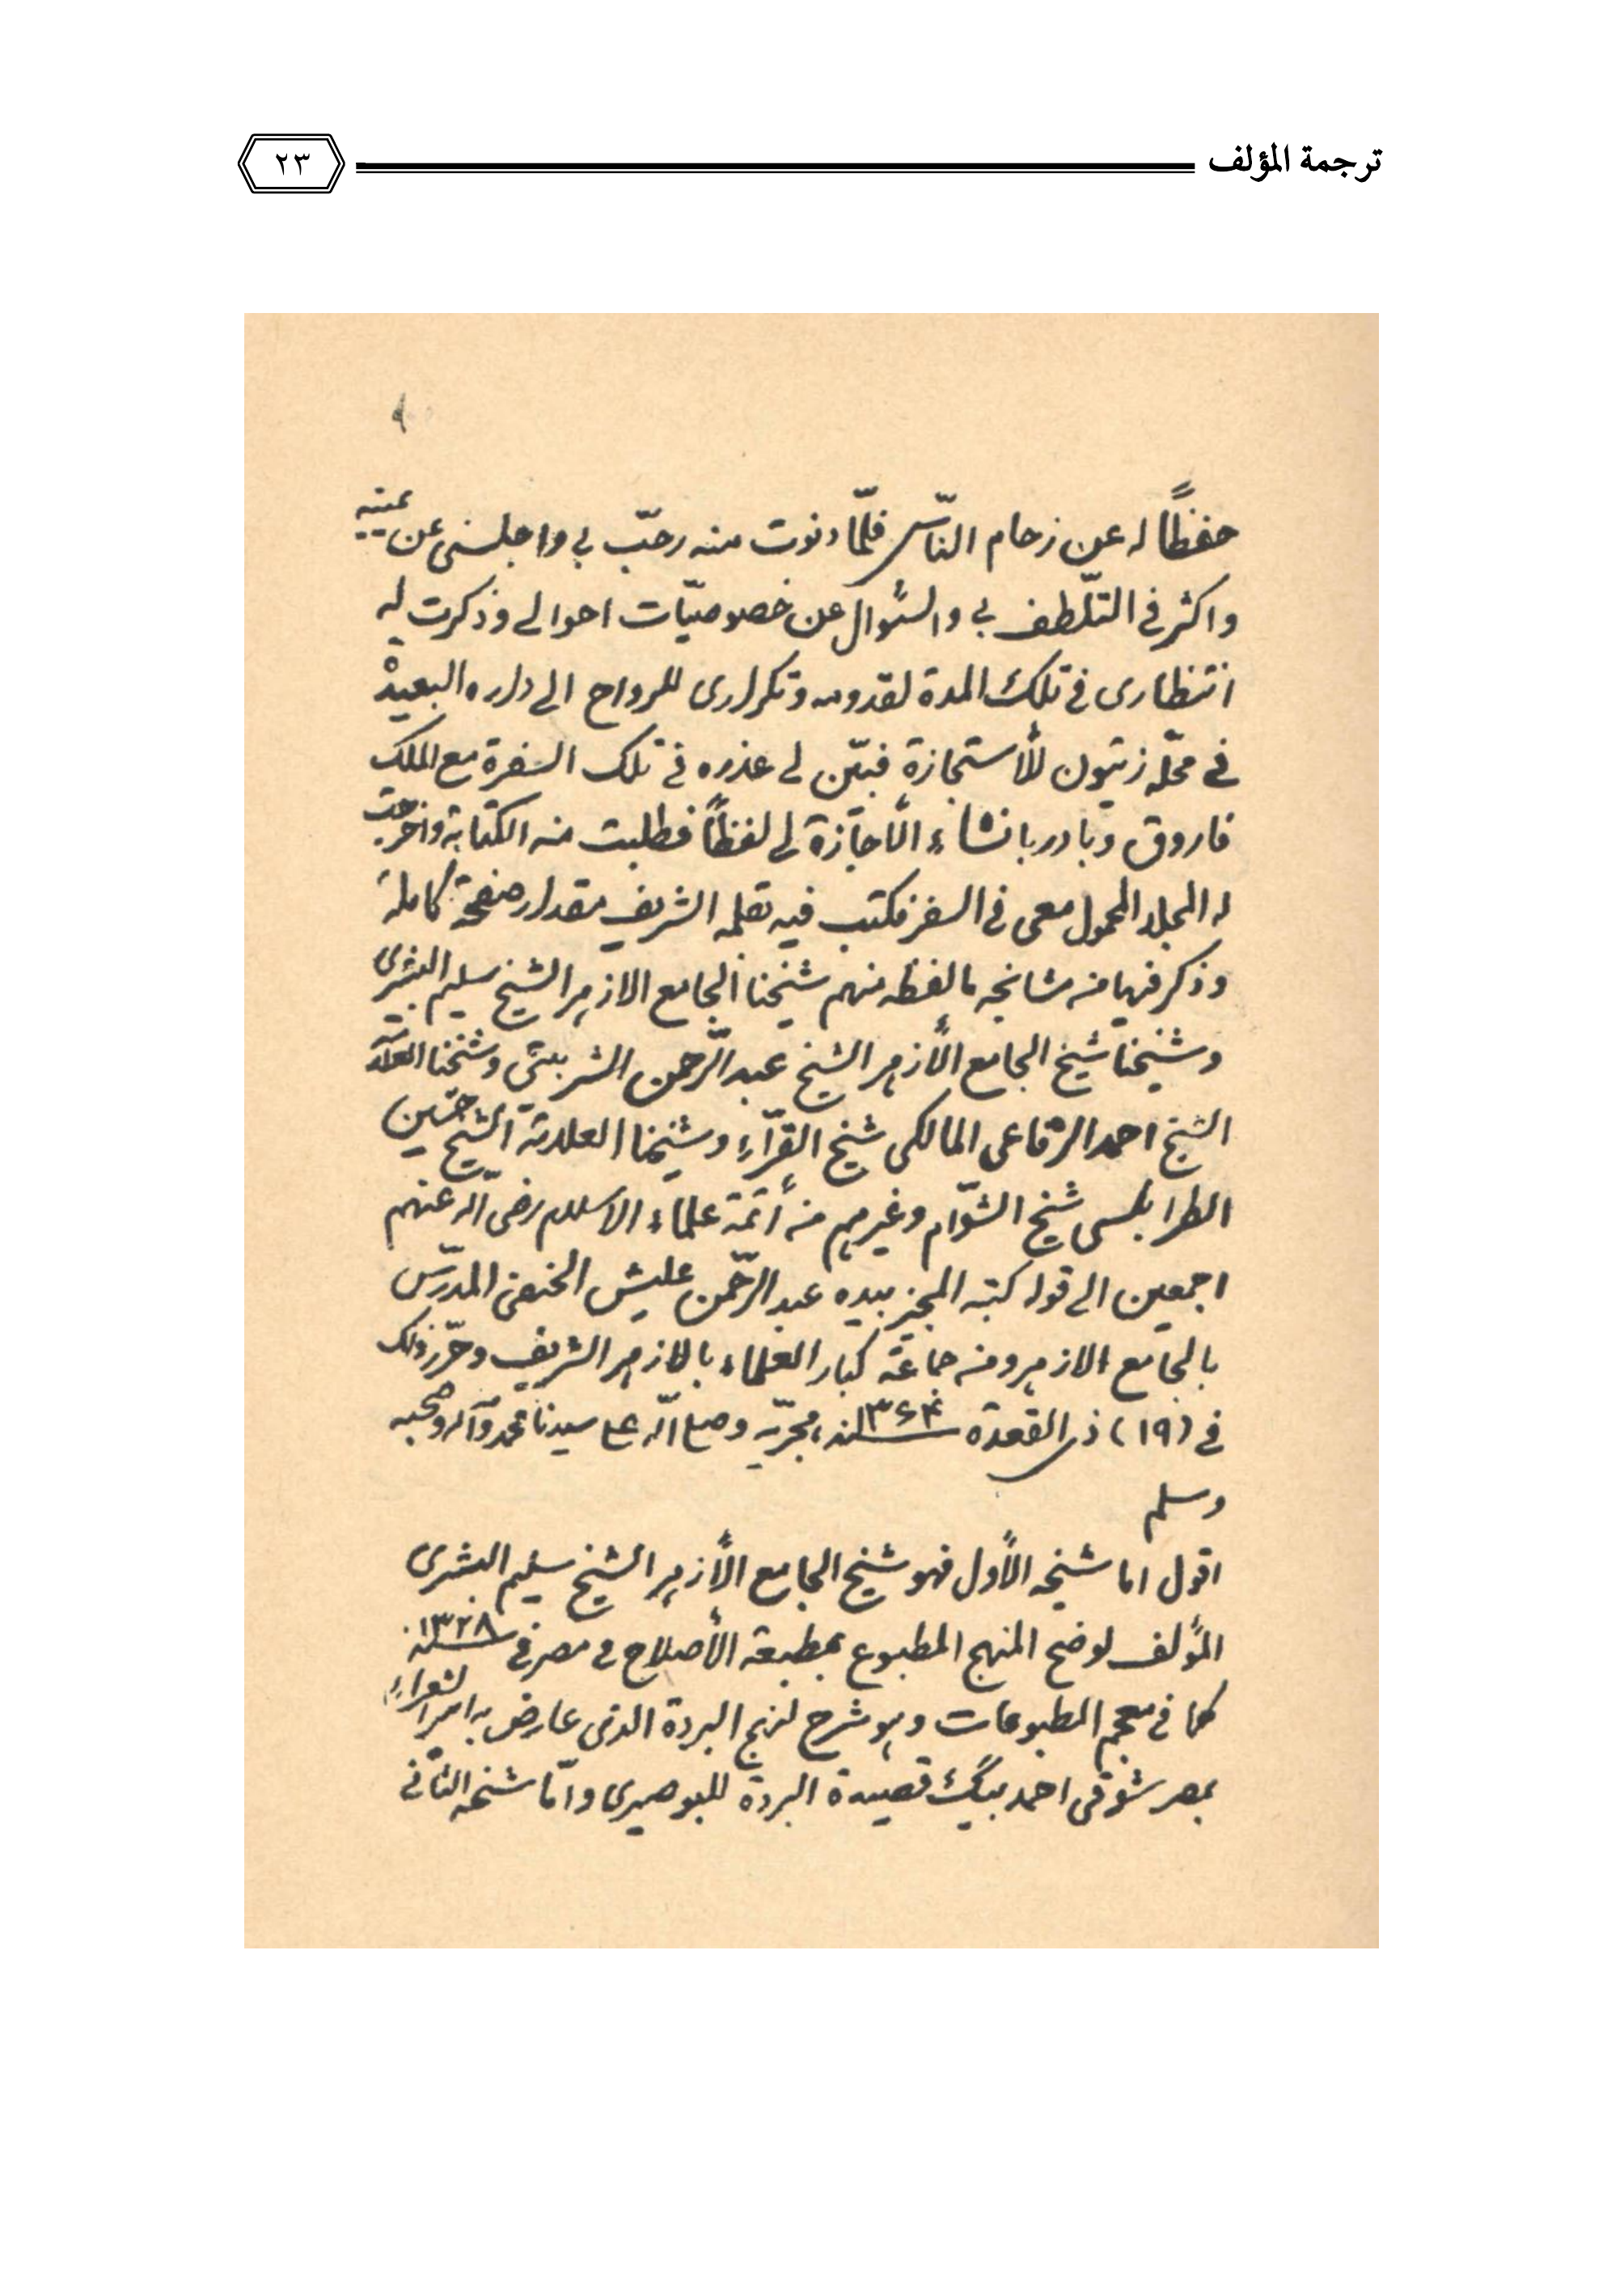 ترجمة المؤلف
٢٣
حفظاً له عن زحام النّاس فلمّا دنوت منه رحّب بي واجلسنى عن يمينه
واكثر في التّلطف بي والسّؤال عن خصوصيّات احوالي وذكرت له
انتظارى في تلك المدة لقدومه وتكرارى للرواح الى داره البعيدة
في محلّه زيتون للأستجازة فبيّن لي عذره في تلك السفرة مع الملك
فاروق وبادر بانشاء الأجازة لي لفظاً فطلبت منه الكتابة واخرجت
له المجلد المحمول معى في السفر فكتب فيه بقلمه الشريف مقدار صفحة كاملة
وذكر فيها من مشائخه ما لفظه منهم شيخنا الجامع الازهر الشيخ سليم البشرى
وشيخنا شيخ الجامع الأزهر الشيخ عبد الرّحمن الشربينى وشيخنا العلامة
الشيخ احمد الرّفاعى المالكى شيخ القرّاء وشيخنا العلامة الشيخ حسين
الطرابلسى شيخ الشوّام وغيرهم من أئمة علماء الاسلام رضى الله عنهم
اجمعين الى قوله كتبه المجيز بيده عبد الرّحمن عليش الحنفى المدرّس
بالجامع الازهر ومن جماعة كبار العلماء بالازهر الشريف وحرّر ذلك
في (١٩) ذى القعدة سنة ١٣٦۴ هجريّه وصلى الله على سيدنا محمد وآله وصحبه
وسلم
اقول اما شيخه الأول فهو شيخ الجامع الأزهر الشيخ سليم البشرى
المؤلف لوضح المنهج المطبوع بمطبعة الأصلاح في مصر في سنة ١٣٢٨
كما في معجم المطبوعات وهو شرح لنهج البردة الذى عارض به امير الشعراء
بمصر شوقى احمد بيگ قصيدة البردة للبوصيرى وامّا شيخه الثّانى